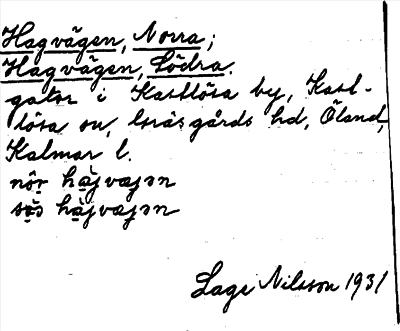 Hagvägen, Norra;
Hagvägen, Södra.
gator i Kastlösa by, Kast-
lösa sn, Gräsgårds hd, Öland,
Kalmar l.
nōr hājvæjən
sø̄s hājvæjən
Lage Nilsson 1931